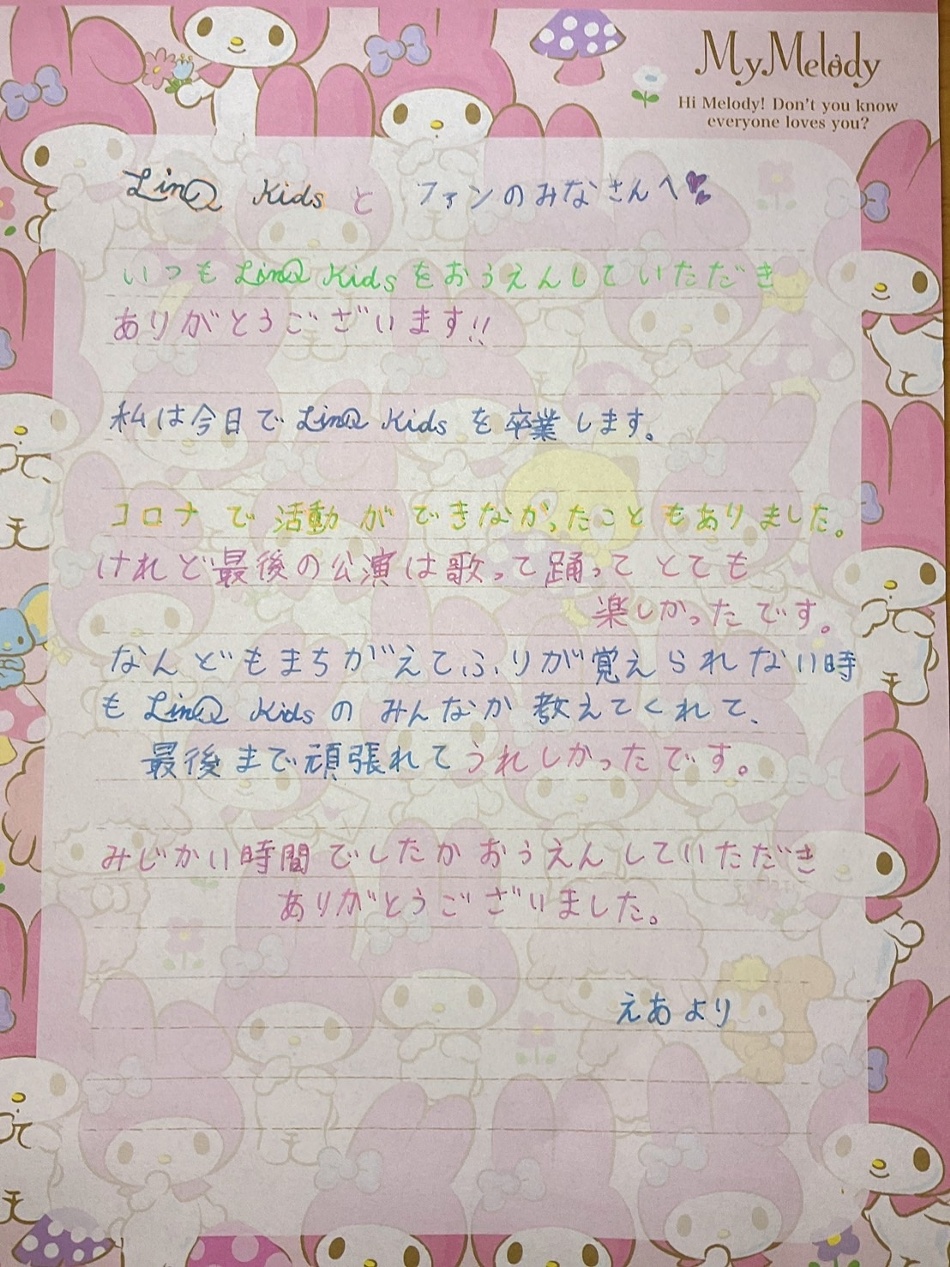 My Melody
Hi Melody! Don't you know
everyone loves you?
LinQ Kids と ファンのみなさんへ
いつも LinQ Kids をおうえんしていただき
ありがとうございます!!
私は今日で LinQ Kids を卒業します。
コロナで活動ができなかったこともありました。
けれど最後の公演は歌って踊ってとても
楽しかったです。
なんどもまちがえてふりが覚えられない時
も LinQ Kids のみんなが教えてくれて、
最後まで頑張れてうれしかったです。
みじかい時間でしたがおうえんしていただき
ありがとうございました。
えあより